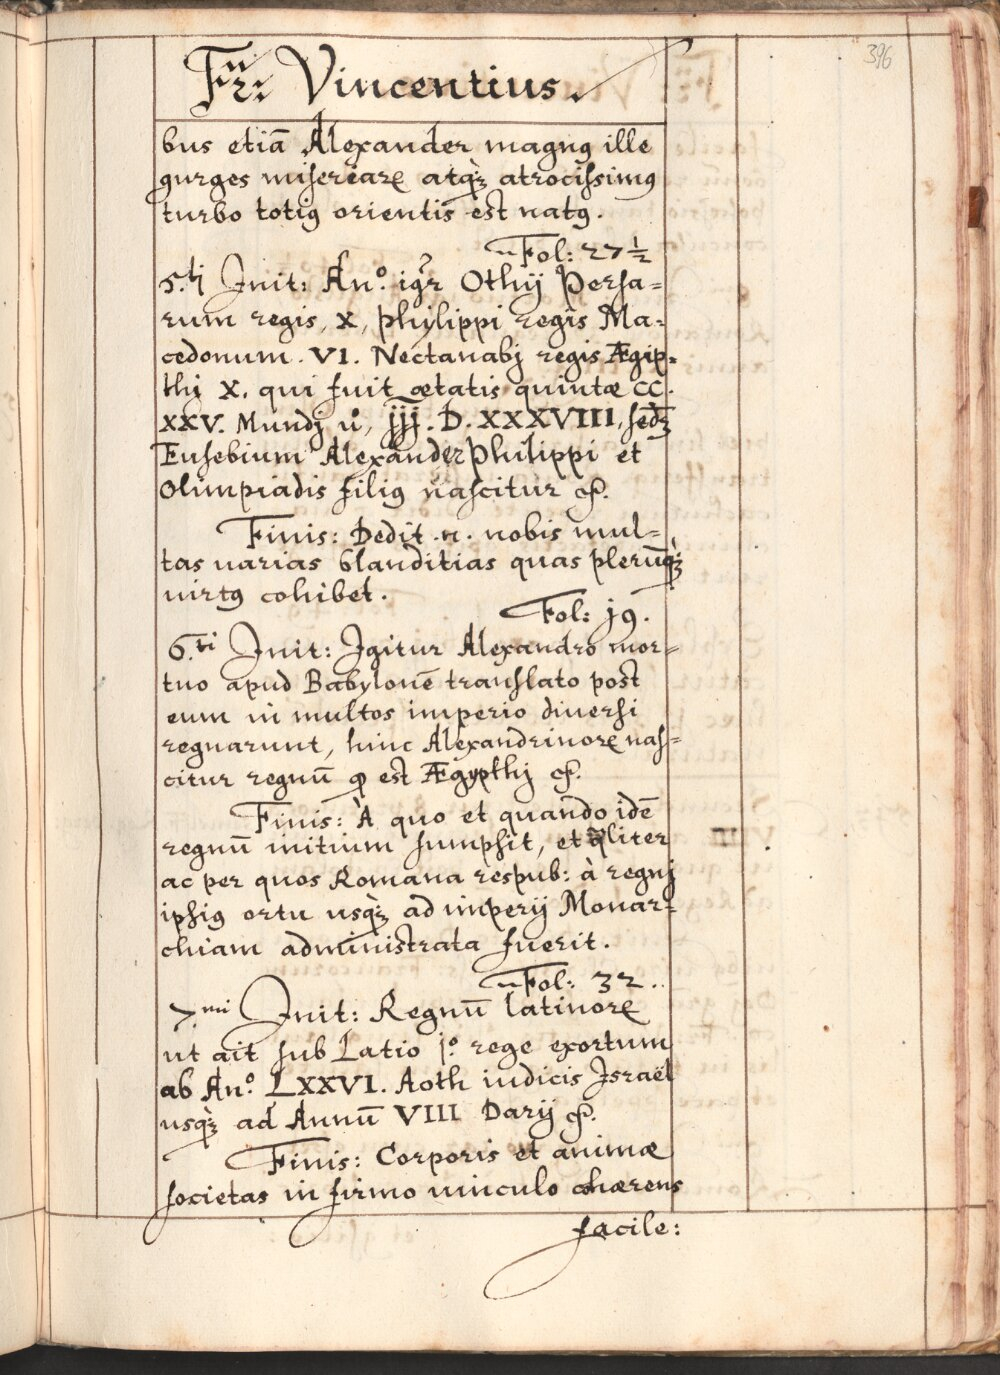 396
Fr: Vincentius.
bus etiā Alexander magnꝰ ille
gurges miseriarꝝ atqꝫ atrocissimꝰ
turbo totiꝰ orientis est natꝰ.
Fol: 27½
5.ti Init: An.º igr̃ Othij Persa=
rum regis, X, Phylippi regis Ma=
cedonum. VI. Nectanabj regis Ægip=
thj X. qui fuit ætatis quintæ CC.
XXV. Mundj ů, jjj. D. XXXVIII, sedꝫ
Eusebium Alexander Philippi et
Olimpiadis filiꝰ nascitur &.
Finis: Dedit .n. nobis mul=
tas uarias blanditias quas plerūqꝫ
uirtꝰ cohibet.
Fol: 19.
6.ti Init: Igitur Alexandro mor=
tuo apud Babylonē translato post
eum in multos imperio diuersi
regnarunt, hinc Alexandrinorꝝ nas=
citur regnū qͦ est Ægypthj &.
Finis: À quo et quando idē
regnū initium sumpsit, et qͣliter
ac per quos Romana respub: à regnj
ipsiꝰ ortu usqꝫ ad imperij Monar=
chiam administrata fuerit.
Fol: 32..
7.mi Init: Regnū latinorꝝ
ut ait sub Latio j.º rege exortum
ab An.º LXXVI. Aoth iudicis Israël
usqꝫ ad Annū VIII Darij &.
Finis: Corporis et animæ
societas in firmo uinculo chœrens
facile: